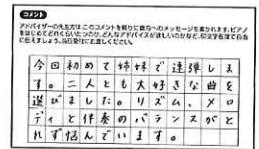 コメント
アドバイザーの先生方はこのコメントを頼りに貴方へのメッセージを書かれます。ピアノ
をはじめてどれくらいたつのか、どんなアドバイスが欲しいのかなど、60文字程度で自由
に伝えましょう。当日受付にお渡しください。
今回初めて姉妹で連弾しま
す。二人とも大好きな曲を
選びました。リズム、メロ
ディと伴奏のバランスがと
れず悩んでいます。